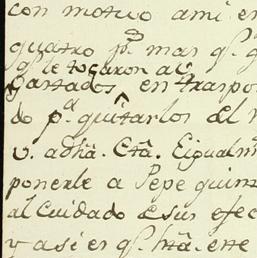 con motivo ami en
quatro p.s mas q.e g
q.e le tocaron al
gastados en traspor
do p.a quitarlos del
v. adhã. Etã. Eigualm
ponerle a Pepe quin
al Cuidado de sus efec
y asi es q.e htã. este